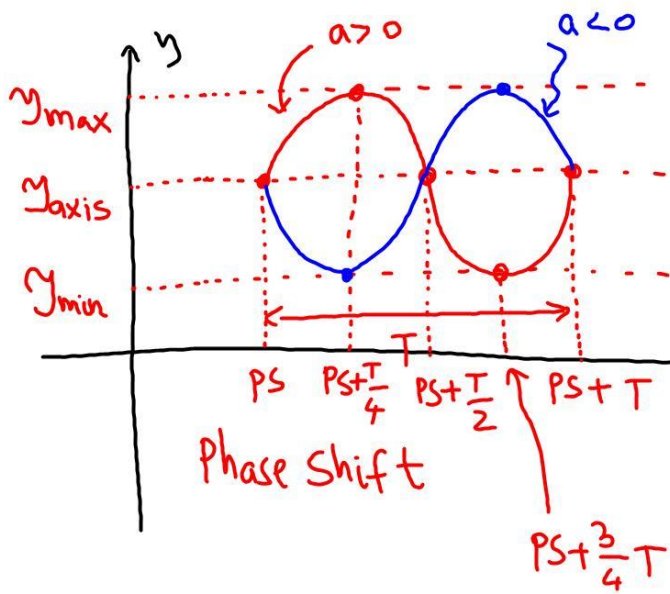 a>0
a<0
y
ymax
yaxis
ymin
T
PS
PS+T/4
PS+T/2
PS+T
Phase Shift
PS+3/4 T